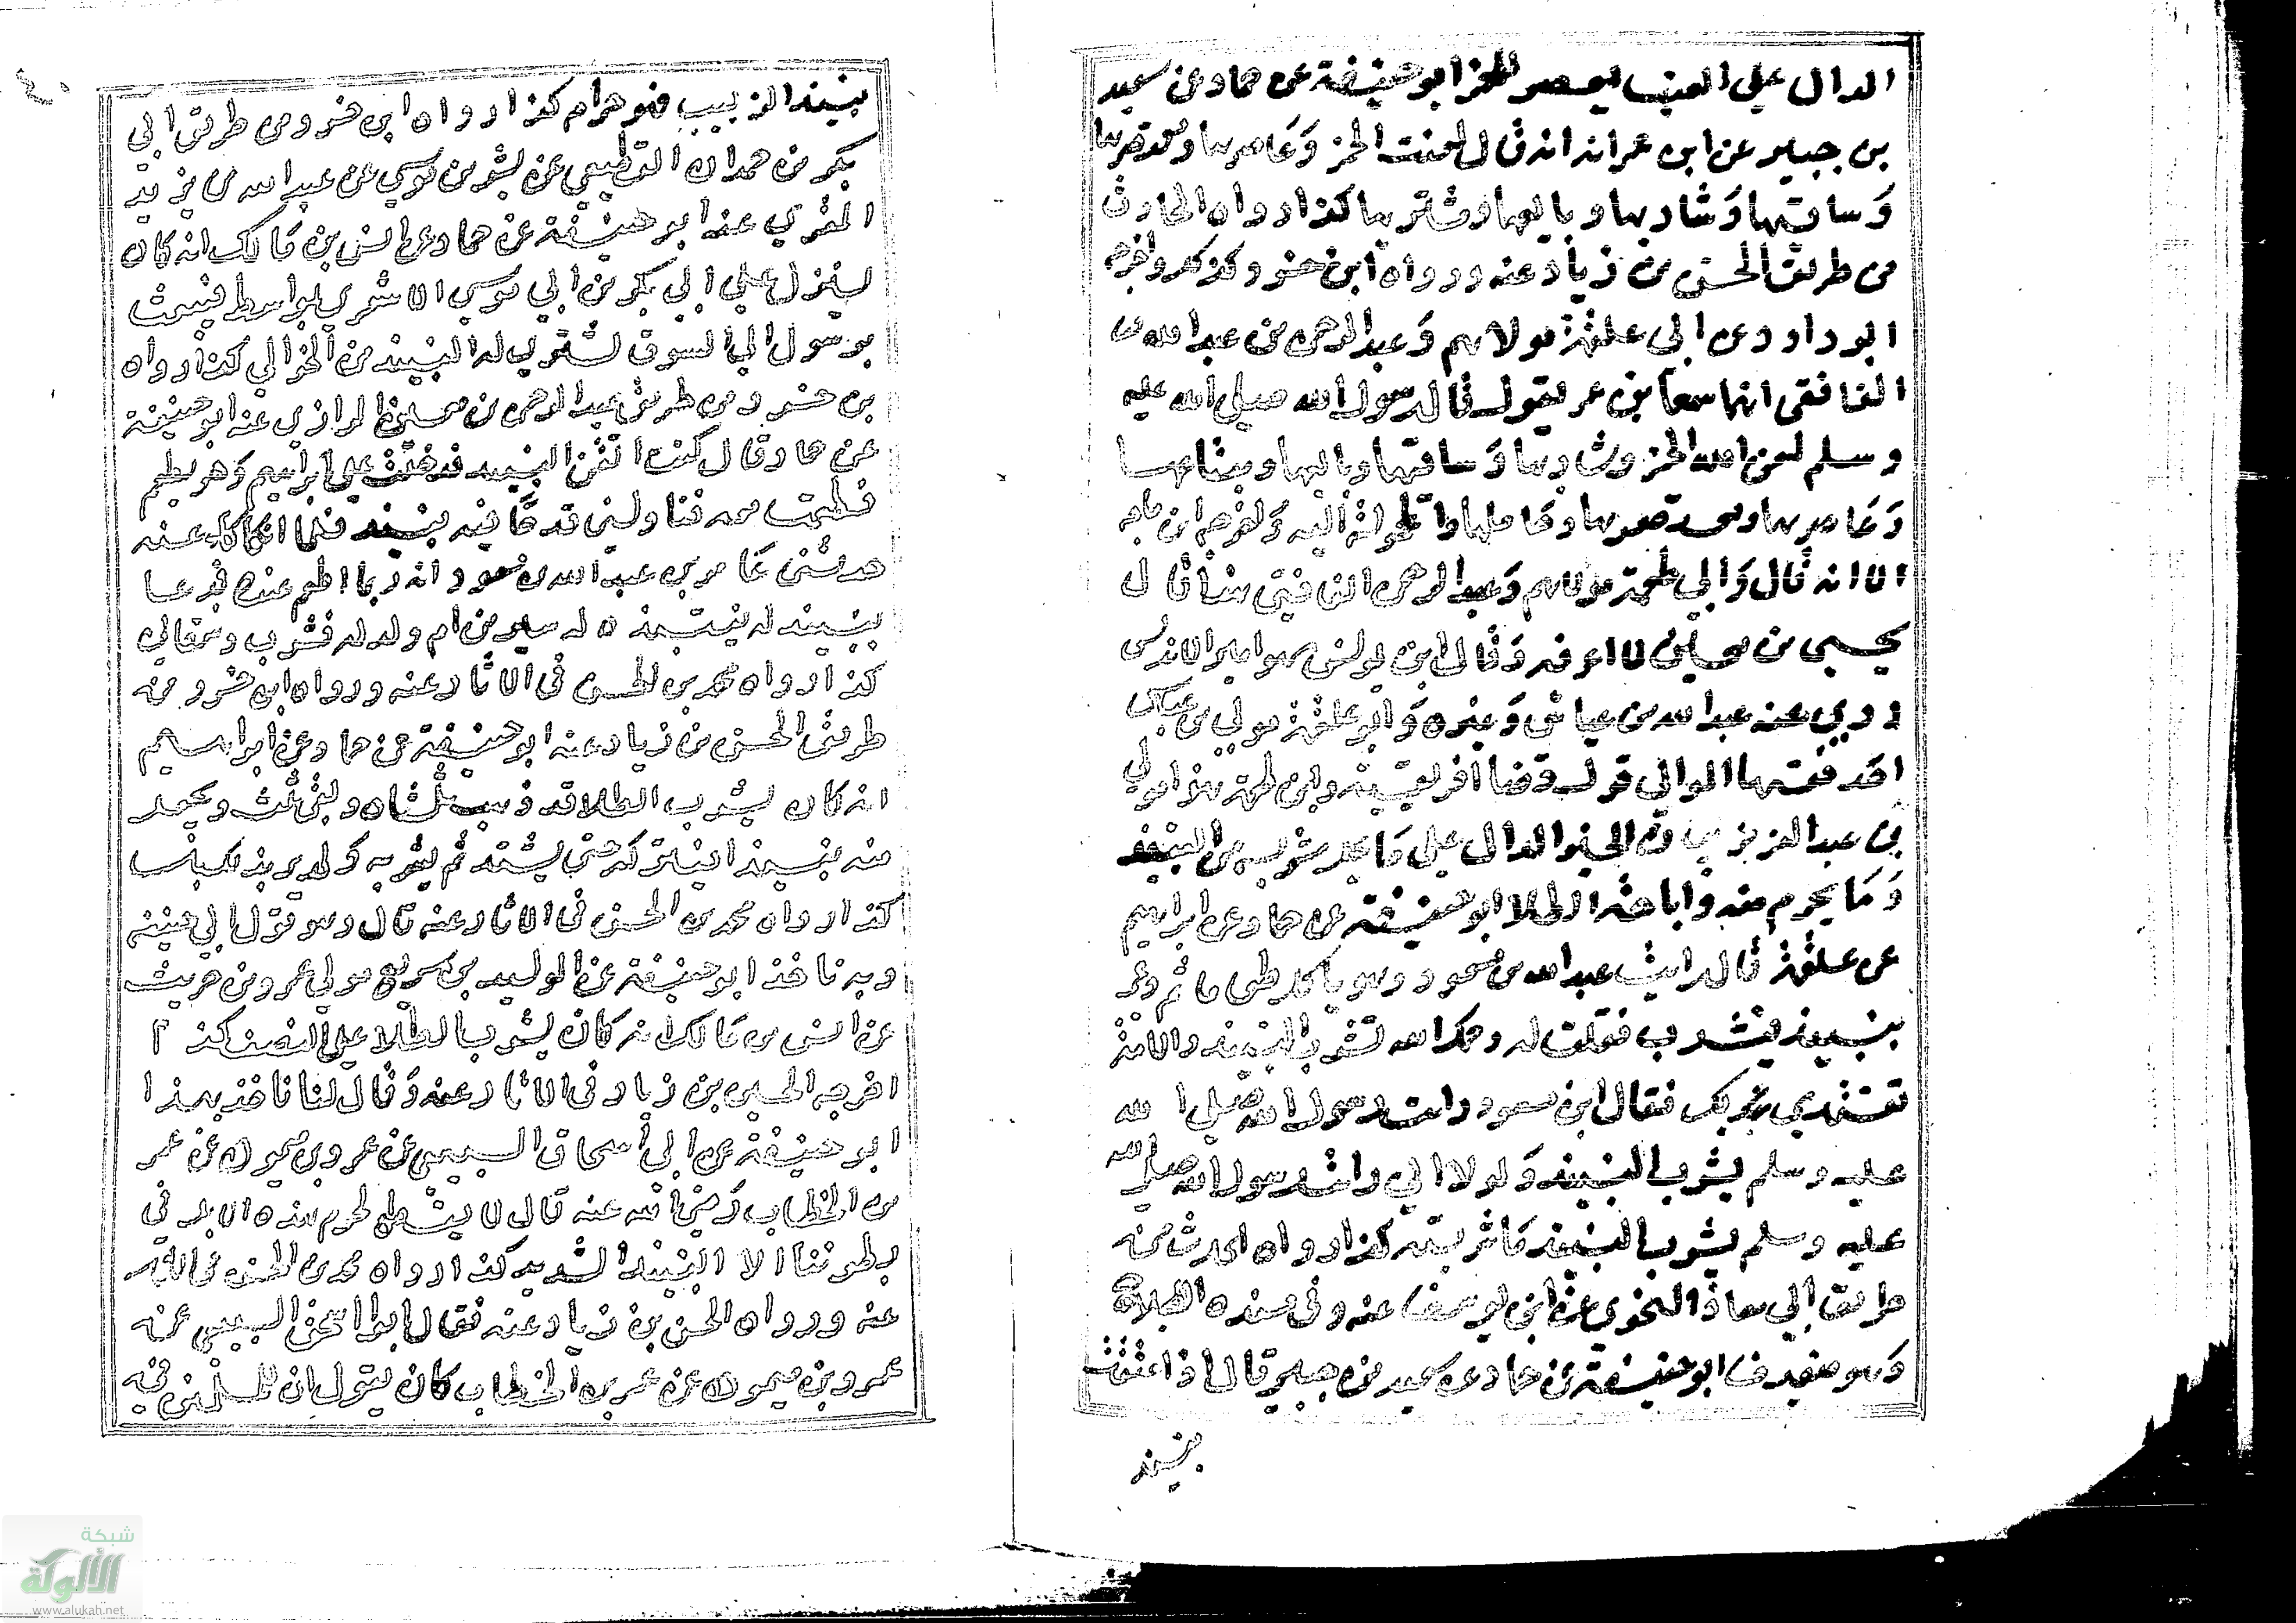 الدال علي العنب يعصر للخمر ابو حنيفة عن حماد عن سعيد
بن جبير عن ابن عمر انه قال لعنت الخمر وعاصرها ومعتصرها
وساقيها وشاربها وبايعها ومشتريها كذا رواه الحارث
من طريق الحسن بن زياد عنه ورواه ابن خسرو واخرجه
ابو داود عن ابي علقمة مولاهم وعبد الرحمن بن عبد الله
الغافقي انهما سمعا بن عمر يقول قال رسول الله صلي الله عليه
وسلم لعن الله الخمر وشاربها وساقيها وبايعها ومبتاعها
وعاصرها ومعتصرها وحاملها والمحمولة اليه واخرجه ابن ماجه
الا انه قال وابي طعمة مولاهم وعبد الرحمن الغافقي هذا قال
يحيى بن معين لا اعرفه وقال ابن يونس هو امير الاندلس
روي عنه عبد الله بن عياش وغيره وابو علقمة مولي بن عباس
احد فقهاء الموالي قضا افريقية وابن طعمة هذا مولي
بن عبد العزيز الخبر الدال علي ما يحل شربه من النبيذ
وما يحرم منه واباحة الطلا ابو حنيفة عن حماد عن ابراهيم
عن علقمة قال رايت عبد الله بن مسعود وهو ياكل طعاما ثم دعا
بنبيذ فشرب فقلت له رحمك الله تشرب النبيذ والامة
تقتدي بك فقال ابن مسعود رايت رسول الله صلي الله
عليه وسلم يشرب النبيذ ولولا اني رايت رسول الله صلي الله
عليه وسلم يشرب النبيذ ما شربته كذا رواه الحارث من
طريق ابي معاذ النحوي عن ابي يوسف عنه وفي سنده
وهو ضعيف ابو حنيفة عن حماد عن سعيد بن جبير قال اذا عتقت
بنبيذ
نبيذ الزبيب فهو حرام كذا رواه ابن خسرو من طريق ابي
بكر بن حمدان القطيعي عن بشر بن موسي عن عبد الله بن يزيد
المقري عنه ابو حنيفة عن حماد عن انس بن مالك انه كان
ينزل علي ابي بكر بن ابي موسي الاشعري بواسط فيبعث
برسول الي السوق يشتري له النبيذ من الخوابي كذا رواه
بن خسرو من طريق عبد الرحمن بن الرازي عنه ابو حنيفة
عن حماد قال كنت اتقي النبيذ فدخلت علي ابراهيم وهو يطعم
فطعمت معه فناولني قدحا فيه نبيذ فلما عنه
حدثني عن عبد الله بن مسعود انه ربما طعم عنده فدعا
بنبيذ له تنبذه له سيرين ام ولد له فشرب وسقاني
كذا رواه محمد بن الحسن في الاثار عنه ورواه ابن خسرو من
طريق الحسن بن زياد عنه ابو حنيفة عن حماد عن ابراهيم
انه كان يشرب الطلا قد ذهب ثلثاه وبقي ثلثه ويجعل
منه نبيذا فيتركه حتى يشتد ثم يشربه ولم ير بذلك باسا
كذا رواه محمد بن الحسن في الاثار عنه قال وهو قول ابي حنيفة
وبه ناخذ ابو حنيفة عن الوليد بن سريع مولي عمرو بن حريث
عن انس بن مالك انه كان يشرب الطلا علي النصف كذا
اخرجه الحسن بن زياد في الاثار عنه وقال لسنا ناخذ بهذا
ابو حنيفة عن ابي اسحاق السبيعي عن عمرو بن ميمون عن عمر
بن الخطاب رضي الله عنه قال لا يقطع لحوم هذه الابل في
بطوننا الا النبيذ الشديد كذا رواه محمد بن الحسن في الاثار
عنه ورواه الحسن بن زياد عنه فقال ابو اسحق السبيعي عن
عمرو بن ميمون عن عمر بن الخطاب كان يقول ان للمسلمين في
شبكة
الألوكة
www.alukah.net